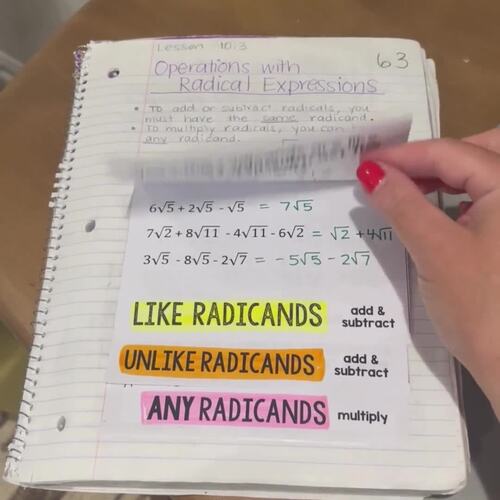 Lesson 10.3
63
Operations with
Radical Expressions
• To add or subtract radicals, you
must have the same radicand.
• To multiply radicals, you can
any radicand.
6√5 + 2√5 - √5 = 7√5
7√2 + 8√11 - 4√11 - 6√2 = √2 + 4√11
3√5 - 8√5 - 2√7 = -5√5 - 2√7
LIKE RADICANDS add & subtract
UNLIKE RADICANDS add & subtract
ANY RADICANDS multiply